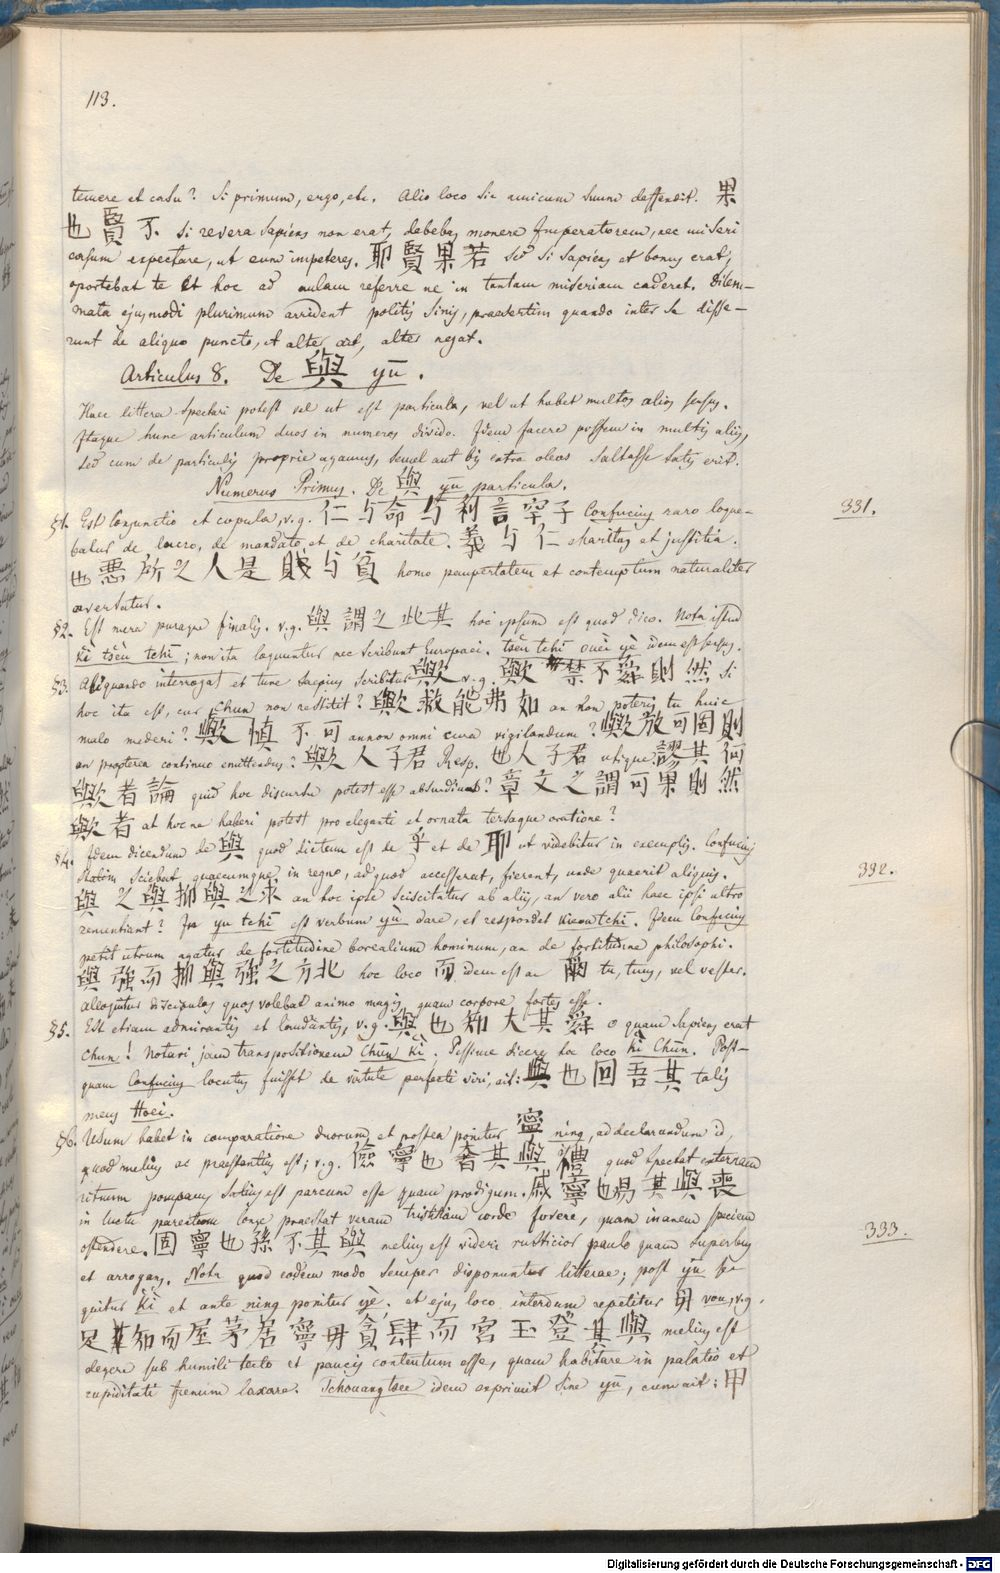 113.
temere et casu? Si primum, ergo, etc. Alio loco sic amicum suum deffendit. 果
也賢不. Si revera sapiens non erat, debebas monere Imperatorem, nec miseri
casum expectare, ut eum impeteres. 耶賢果若 Sed si sapiens et bonus erat,
oportebat te et hoc ad aulam referre ne in tantam miseriam caderet. Dilem-
mata ejusmodi plurimum arrident politis sinis, praesertim quando inter se disse-
runt de aliquo puncto, et alter ait, alter negat.
Articulus 8. De 與 yū.
Haec littera spectari potest vel ut est particula, vel ut habet multos alios sensus.
Itaque hunc articulum duos in numeros divido. Idem facere possem in multis aliis,
sed cum de particulis proprie agamus, semel aut bis extra oleas saltasse satis erit.
Numerus Primus. De 與 yū particula.
§1. Est conjunctio et copula, v.g. 仁与命与利言罕子 Confucius raro loque-
331.
batur de lucro, de mandato et de charitate. 義与仁 charitas et justitia.
也惡所之人是賤与貧 homo paupertatem et contemptum naturaliter
aversatur.
§2. Est mera puraque finalis. v.g. 與謂之此其 hoc ipsum est quod dico. Nota istud
kî tsèu tchī; non ita loquuntur nec scribunt Europaei. tsèu tchī ouéi yè idem est sensus.
§3. Aliquando interrogat et tunc saepius scribitur 歟 v.g. 歟禁不舜則然 Si
hoc ita est, cur Chun non restitit? 歟救能弗如 an non poteris tu huic
malo mederi? 歟慎不可 annon omni cura vigilandum? 歟放可固則
an propterea continuo emittendus? 歟人子君 Resp. 也人子君 utique. 謬其何
歟者論 quid hoc discursu potest esse absurdius? 章文之謂可果則然
歟者 at hoc ne haberi potest pro eleganti et ornata tersaque oratione?
§4. Idem dicendum de 與 quod dictum est de 乎 et de 耶 ut videbitur in exemplis. Confucius
332.
statim sciebat quaecumque in regno, ad quod accesserat, fierent, unde quaerit aliquis.
與之與抑與之求 an hoc ipse sciscitatur ab aliis, an vero alii haec ipsi ultro
renuntiant? In yu tchī est verbum yù dare, et respondet kieou tchī. Idem Confucius
petit utrum agatur de fortitudine borealium hominum, an de fortitudine philosophi.
與強而抑與強之方北 hoc loco 而 idem est ac 爾 tu, tuus, vel vester.
alloquitur discipulos quos volebat animo magis, quam corpore fortes esse.
§5. Est etiam admirantis et laudantis, v.g. 與也知大其舜 o quam sapiens erat
Chun! Notari jam transpositionem Chūn kî. Pessime dicere hoc loco kî Chūn. Post-
quam Confucius locutus fuisset de virtute perfecti viri, ait: 與也回吾其 talis
meus Hoei.
§6. Usum habet in comparatione duorum, et postea ponitur 寧 ning, ad declarandum id,
quod melius ac praestantius est; v.g. 儉寧也奢其與禮 quod spectat externam
rituum pompam, satius est parcum esse quam prodigum. 戚寧也易其與喪
in luctu parentum longe praestat veram tristitiam corde fovere, quam inanem speciem
333.
ostendere. 固寧也孫不其與 melius est videri rusticior paulo quam superbus
et arrogans. Nota quod eodem modo semper disponuntur litterae; post yū se
quitur kî et ante ning ponitur yè. et ejus loco interdum repetitur 毋 vou, v.g.
足知而屋茅居寧毋貪肆而宮玉登其與 melius est
degere sub humili tecto et paucis contentum esse, quam habitare in palatio et
cupiditati frenum laxare. Tchouang tsee idem exprimit sine yū, cum ait: 甲
Digitalisierung gefördert durch die Deutsche Forschungsgemeinschaft - DFG